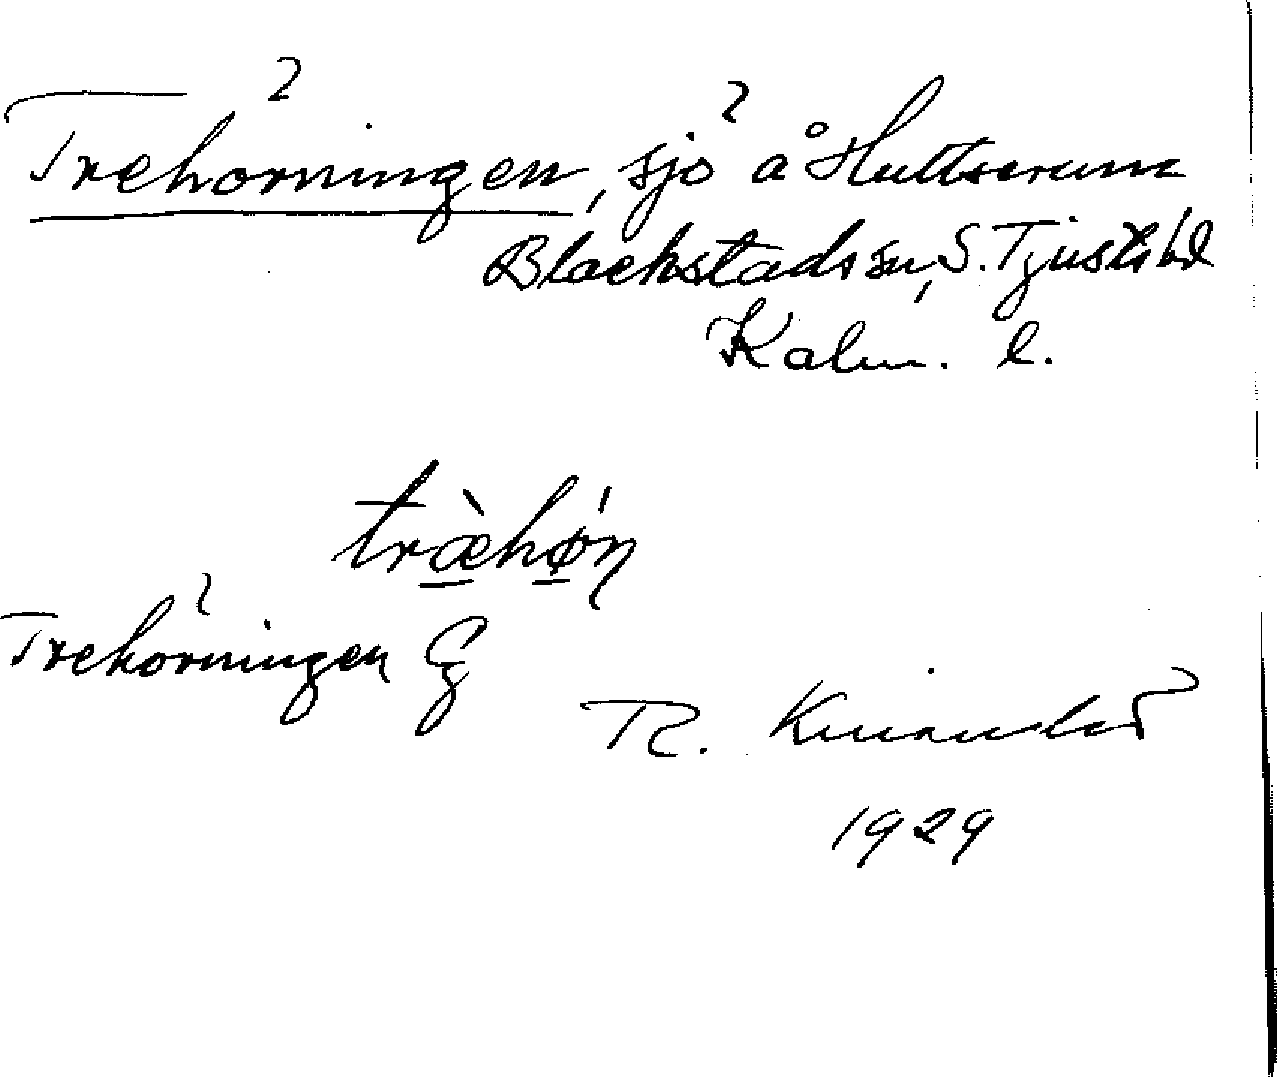 Trehörningen, sjö å Hultserum
Blackstads sn, S. Tjusts hd
Kalm. l.
træ̀hǿn
Trehörningen
R.
1929